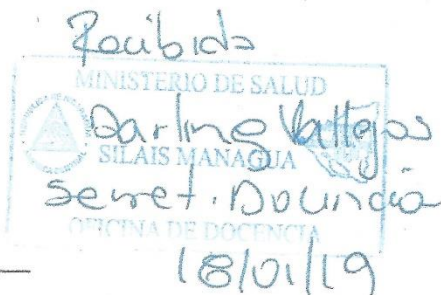 Recibida
MINISTERIO DE SALUD
Darling Vallejos
SILAIS MANAGUA
Secret. Docencia
OFICINA DE DOCENCIA
18/01/19